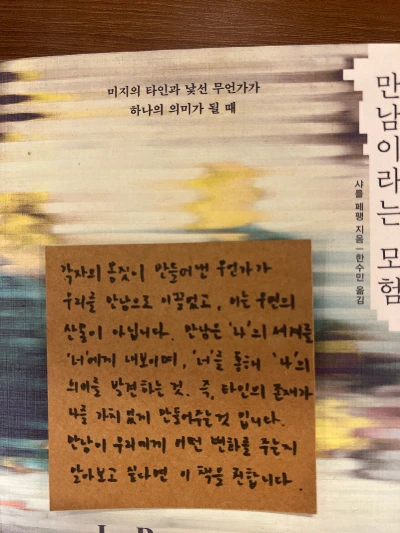 미지의 타인과 낯선 무언가가
하나의 의미가 될 때
만남이라는 모험
샤를 페팽 지음 | 한수민 옮김
각자의 몸짓이 만들어낸 무언가가
우리를 만남으로 이끌었고, 이는 우연의
산물이 아닙니다. 만남은 '나'의 세계를
'너'에게 내보이며, '너'를 통해 '나'의
의미를 발견하는 것. 즉, 타인의 존재가
나를 가치있게 만들어주는 것 입니다.
만남이 우리에게 어떤 변화를 주는지
알아보고 싶다면 이 책을 권합니다.